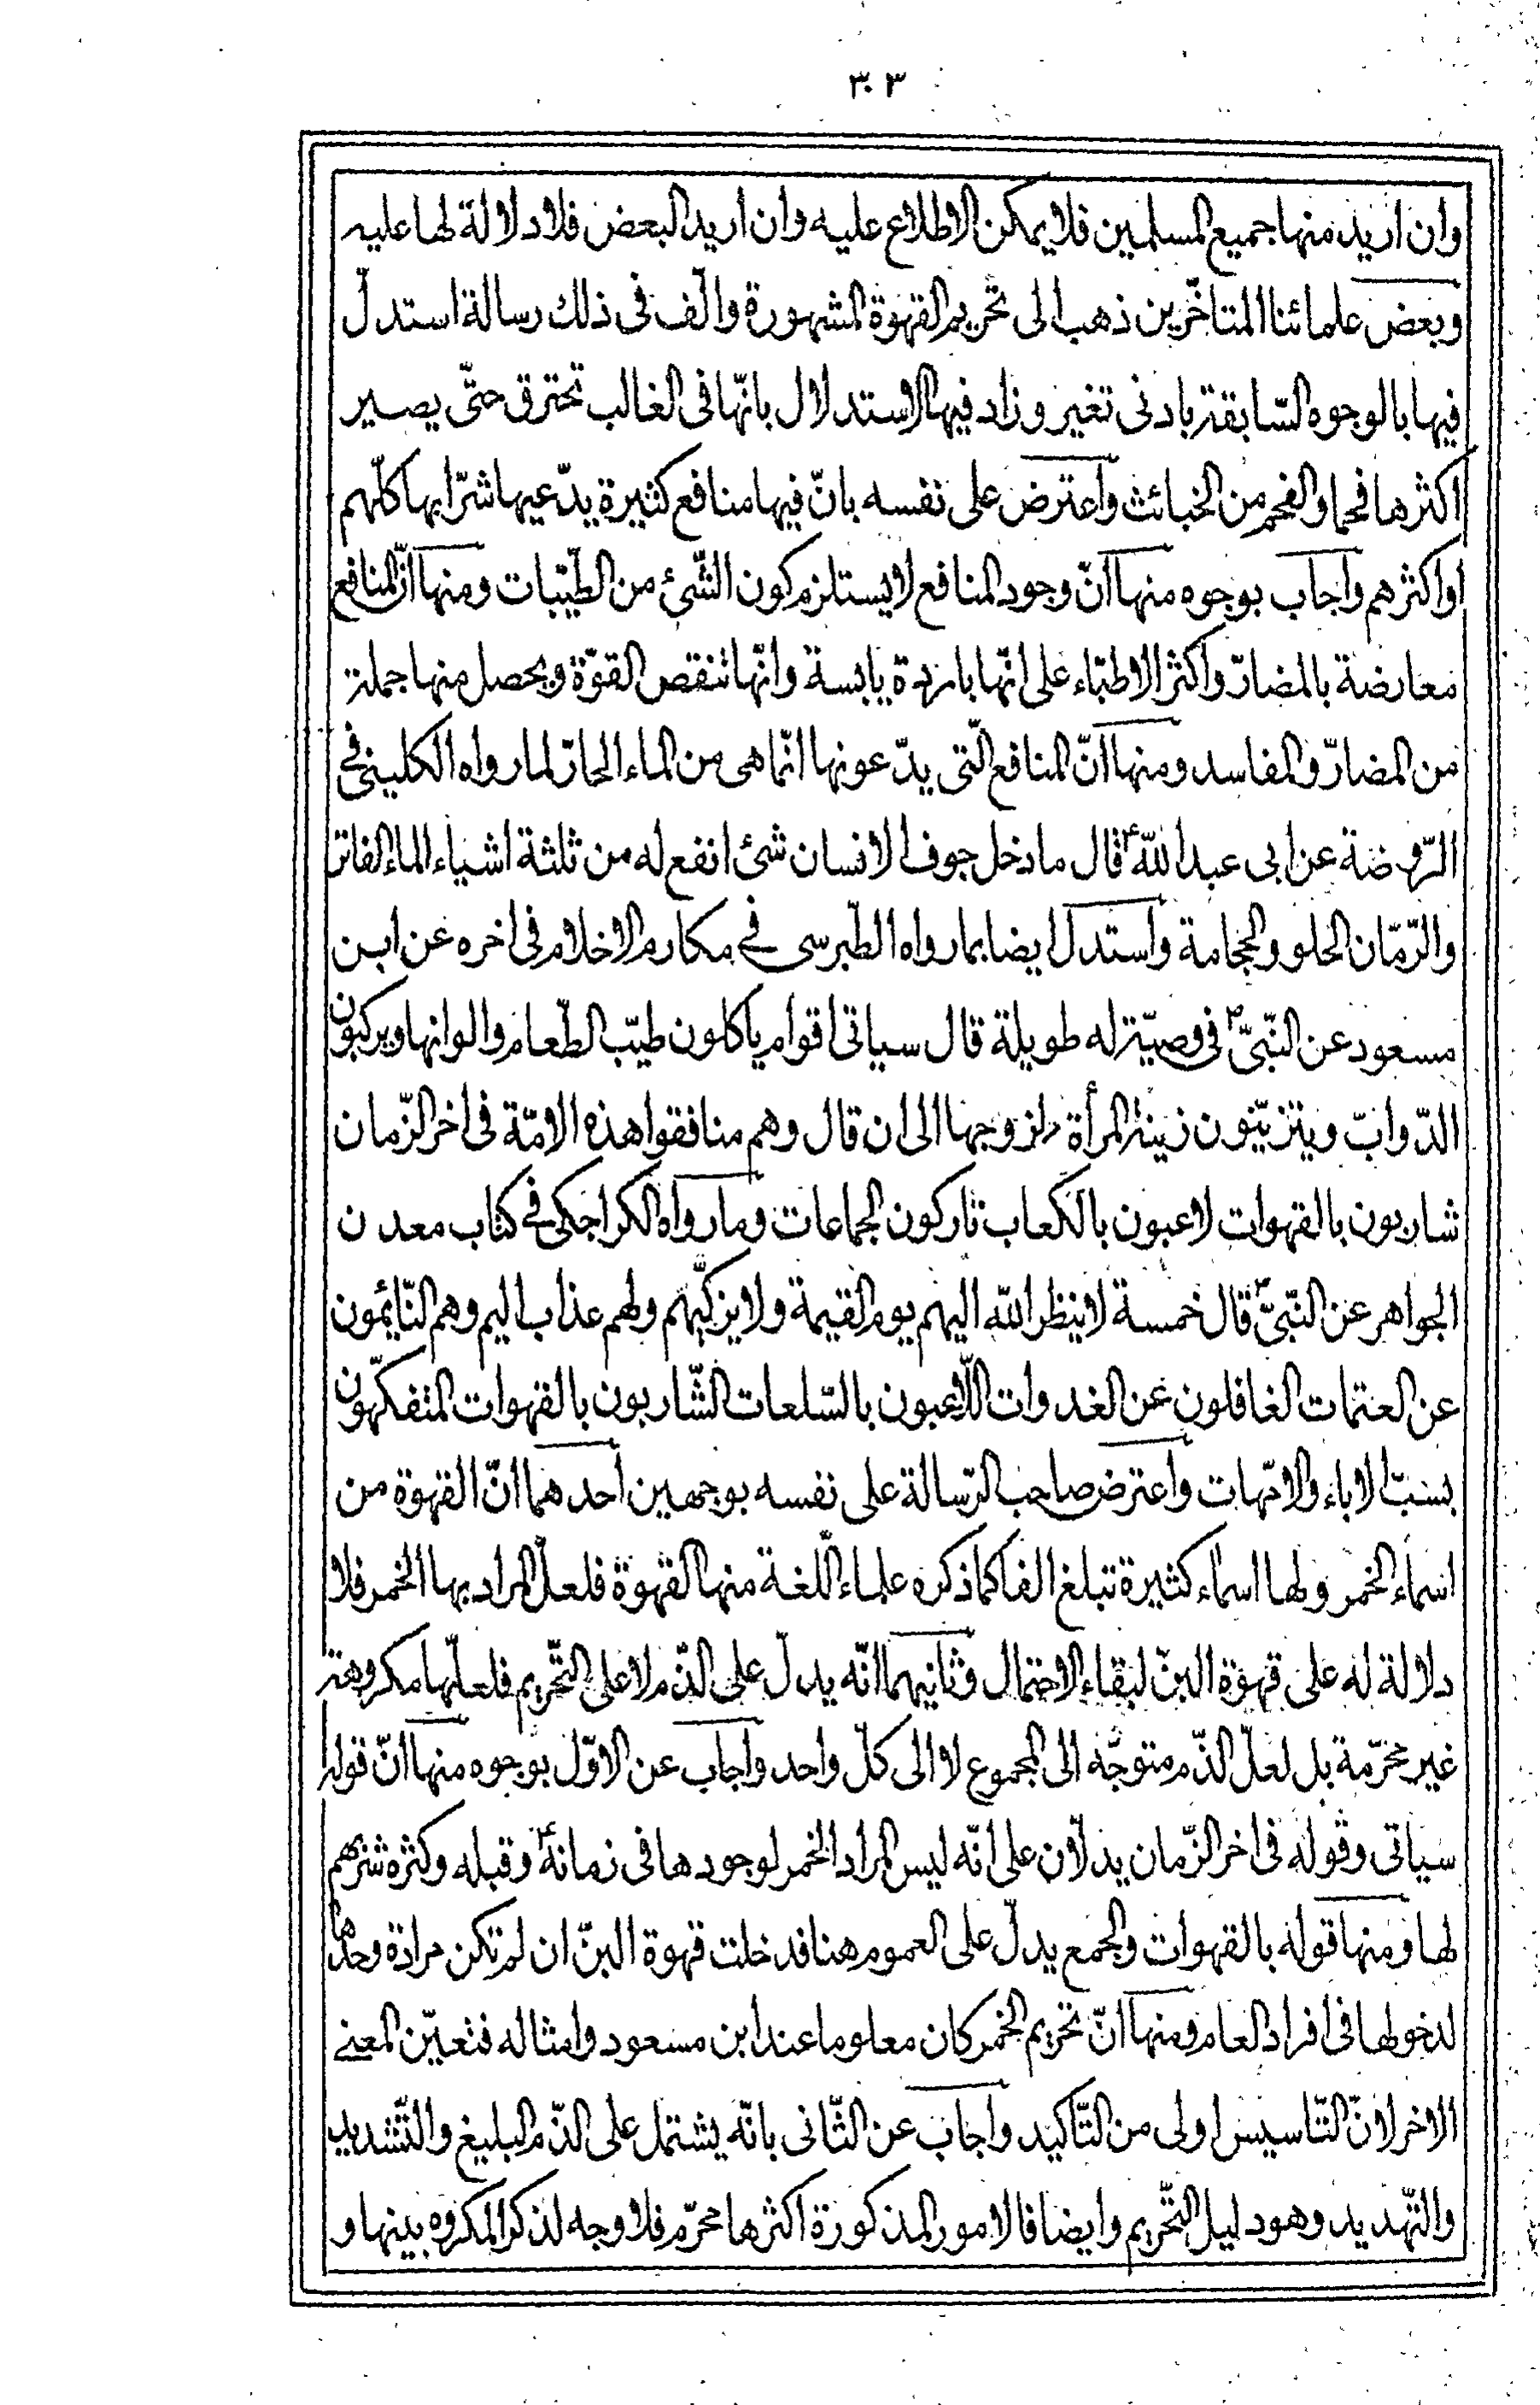 ٣٠٣
وان اريد منها جميع المسلمين فلا يمكن الاطلاع عليه وان اريد البعض فلا دلالة لها عليه
وبعض علمائنا المتاخّرين ذهب الى تحريم القهوة المشهورة والّف فى ذلك رسالة استدلّ
فيها بالوجوه السّابقة بادنى تغير وزاد فيها الاستدلال بانّها فى الغالب تحترق حتّى يصير
اكثرها فحما والفحم من الخبائث واعترض على نفسه بانّ فيها منافع كثيرة يدّعيها شرّابها كلّهم
او اكثرهم واجاب بوجوه منها انّ وجود المنافع لا يستلزم كون الشّئ من الطيّبات ومنها انّ المنافع
معارضة بالمضارّ واكثر الاطبّاء على انّها باردة يابسة وانّها تنقص القوّة ويحصل منها جملة
من المضارّ والمفاسد ومنها انّ المنافع الّتى يدّعونها انّما هى من الماء الحارّ لما رواه الكلينى فى
الرّوضة عن ابى عبد اللّه ع قال ما دخل جوف الانسان شئ انفع له من ثلثة اشياء الماء الفاتر
والرّمّان الحلو والحجامة واستدل ايضا بما رواه الطّبرسى فى مكارم الاخلام فى اخره عن ابن
مسعود عن النّبىّ ص فى وصيّة له طويلة قال سياتى اقوام ياكلون طيّب الطّعام والوانها ويركبون
الدّوابّ ويتزيّنون زينة المرأة لزوجها الى ان قال وهم منافقوا هذه الامّة فى اخر الزّمان
شاربون بالقهوات لاعبون بالكعاب تاركون الجماعات وما رواه الكراجكى فى كتاب معدن
الجواهر عن النّبىّ ص قال خمسة لا ينظر اللّه اليهم يوم القيمة ولا يزكّيهم ولهم عذاب اليم وهم النّائمون
عن العتمات الغافلون عن الغدوات اللّاعبون بالسّلعات الشّاربون بالقهوات المتفكّهون
بسبّ الاباء والامّهات واعترض صاحب الرّسالة على نفسه بوجهين احدهما انّ القهوة من
اسماء الخمر ولها اسماء كثيرة تبلغ الفا كما ذكره علماء اللّغة منها القهوة فلعلّ المراد بها الخمر فلا
دلالة له على قهوة البنّ لبقاء الاحتمال وثانيهما انّه يدلّ على الذّم لا على التّحريم فلعلّها مكروهة
غير محرّمة بل لعلّ الذّم متوجّه الى المجموع لا الى كلّ واحد واجاب عن الاوّل بوجوه منها انّ قوله
سياتى وقوله فى اخر الزّمان يدلّان على انّه ليس المراد الخمر لوجودها فى زمانه ع وقبله وكثرة شربهم
لها ومنها قوله بالقهوات والجمع يدلّ على العموم هنا فدخلت قهوة البنّ ان لم تكن مرادة وحدها
لدخولها فى افراد العام ومنها انّ تحريم الخمر كان معلوما عند ابن مسعود وامثاله فتعيّن المعنى
الاخر لانّ التّاسيس اولى من التّاكيد واجاب عن الثّانى بانّه يشتمل على الذّم البليغ والتّشديد
والتّهديد وهو دليل التّحريم وايضا فالامور المذكورة اكثرها محرّم فلا وجه لذكر المكروه بينها و